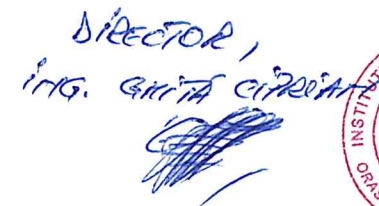 DIRECTOR,
ING. GHIȚĂ CIPRIAN
INSTIT
ORAȘ